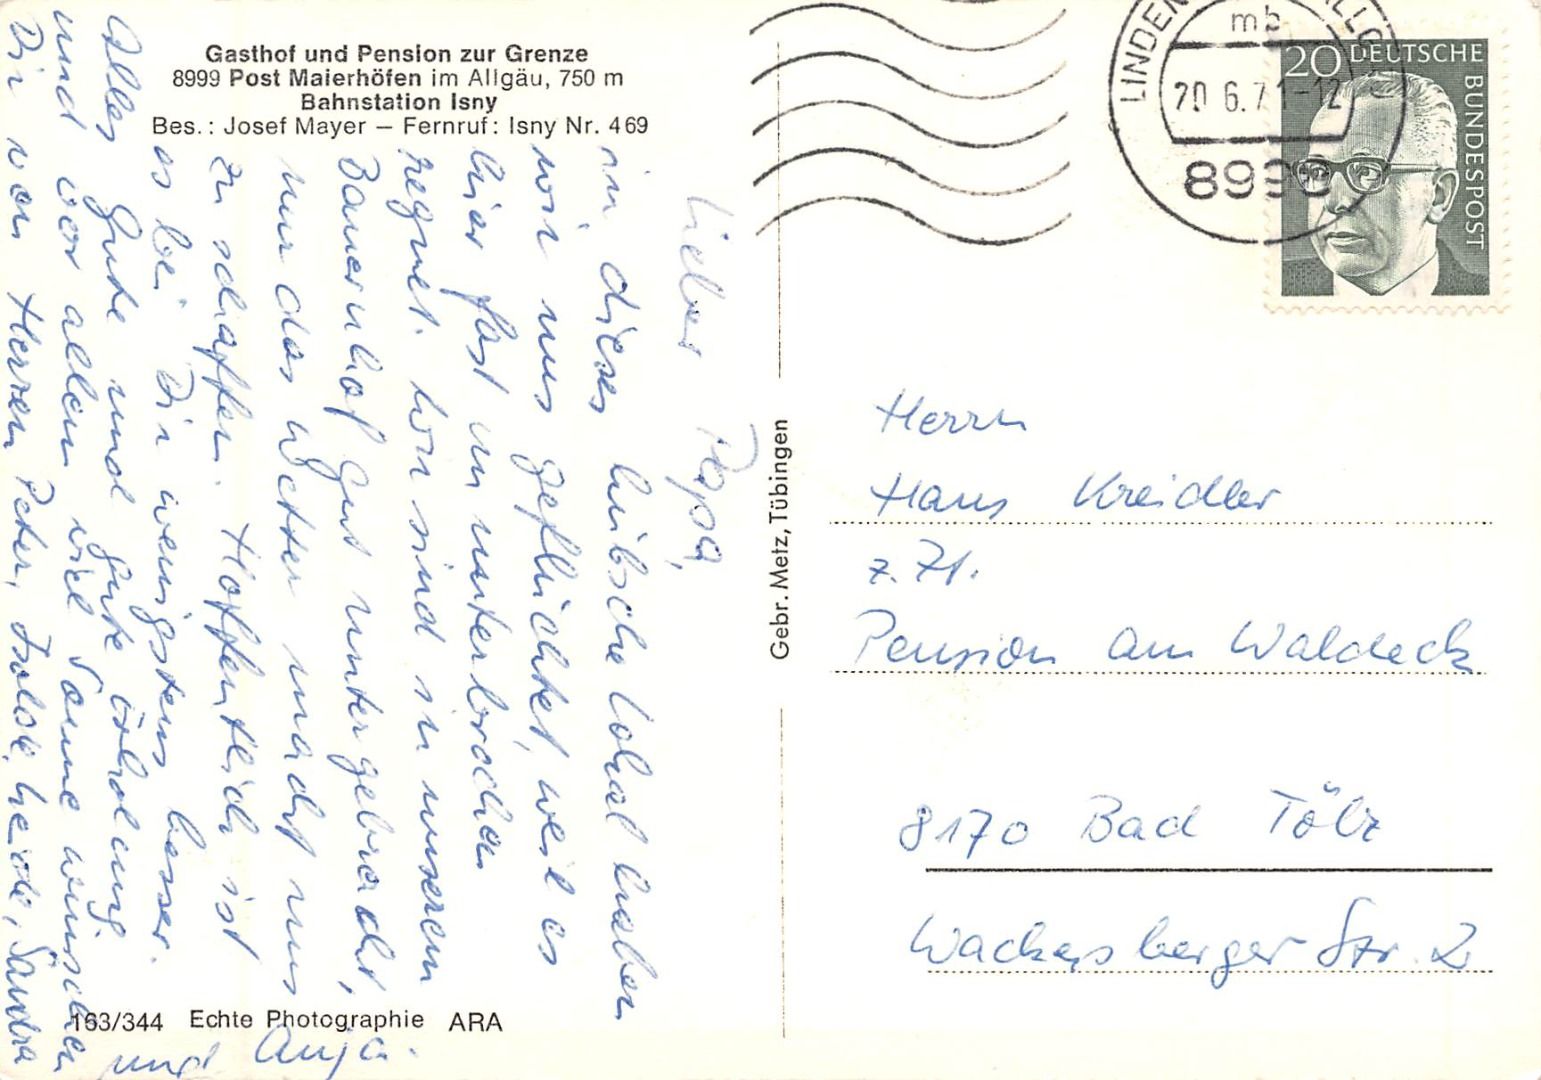 Gasthof und Pension zur Grenze
8999 Post Maierhöfen im Allgäu, 750 m
Bahnstation Isny
Bes.: Josef Mayer – Fernruf: Isny Nr. 469
Lieber Papa,
in dieses hübsche Lokal haben
wir uns geflüchtet, weil es
hier fast ununterbrochen
regnet. Wir sind in unserem
Bauernhof gut untergebracht,
nur das Wetter macht uns
zu schaffen. Hoffentlich ist
es bei Dir wenigstens besser.
Alles Gute und gute Erholung
und vor allem viel Sonne wünschen
Dir von Herzen Peter, Isolde, Heide, Sandra
und Anja.
163/344 Echte Photographie ARA
Gebr. Metz, Tübingen
mb
20.6.71-12
8998
20 DEUTSCHE
BUNDESPOST
Herrn
Hans Kreidler
z. Zt.
Pension am Waldeck
8170 Bad Tölz
Wackersberger Str. 2